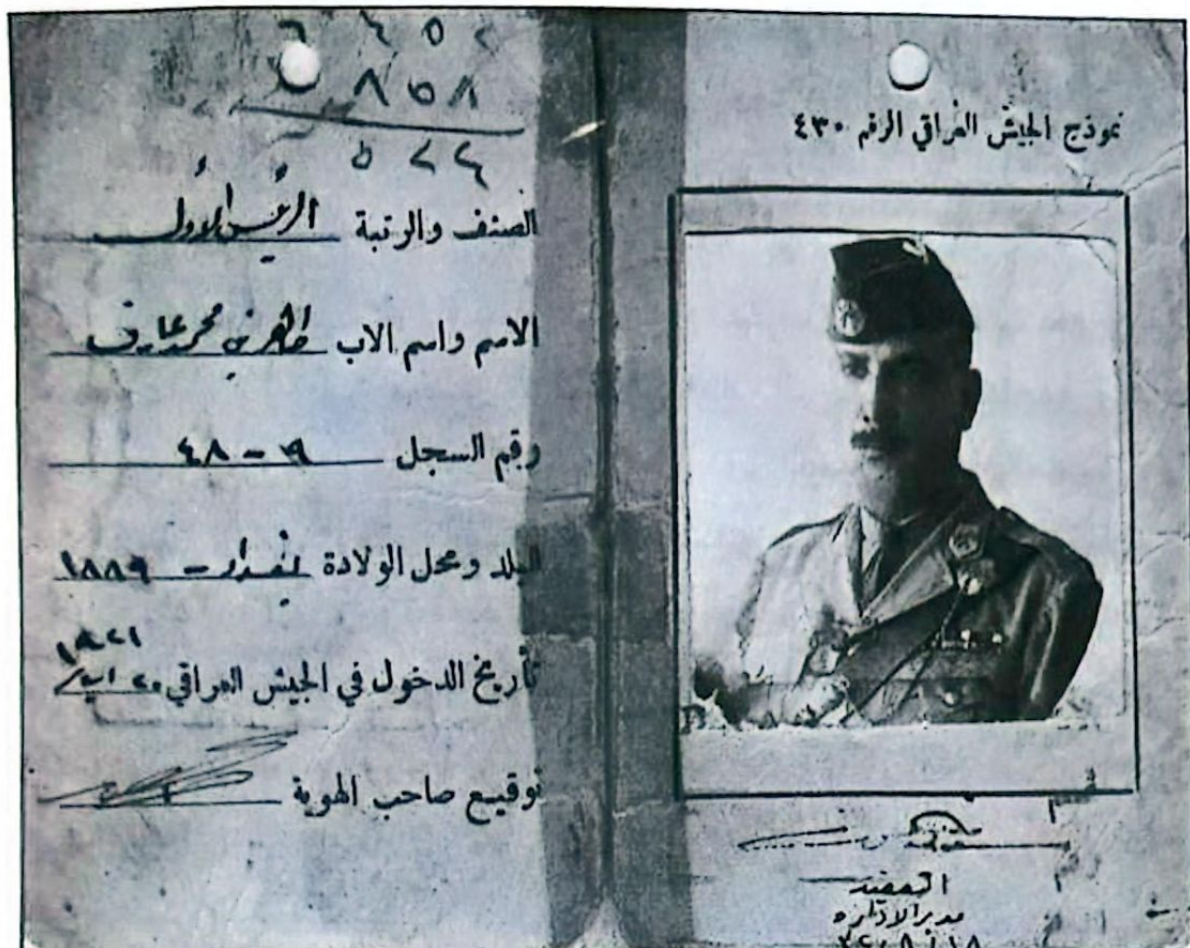 نموذج الجيش العراقي الرقم ٤٣٠
العقيد
مدير الادارة
٨٥٨
٥٢٤
الصنف والرتبة الرئيس الاول
الاسم واسم الاب طاهر بن محمد عارف
رقم السجل ٩ - ٤٨
البلد ومحل الولادة بغداد - ١٨٨٩
تأريخ الدخول في الجيش العراقي ١٩٢١
توقيع صاحب الهوية